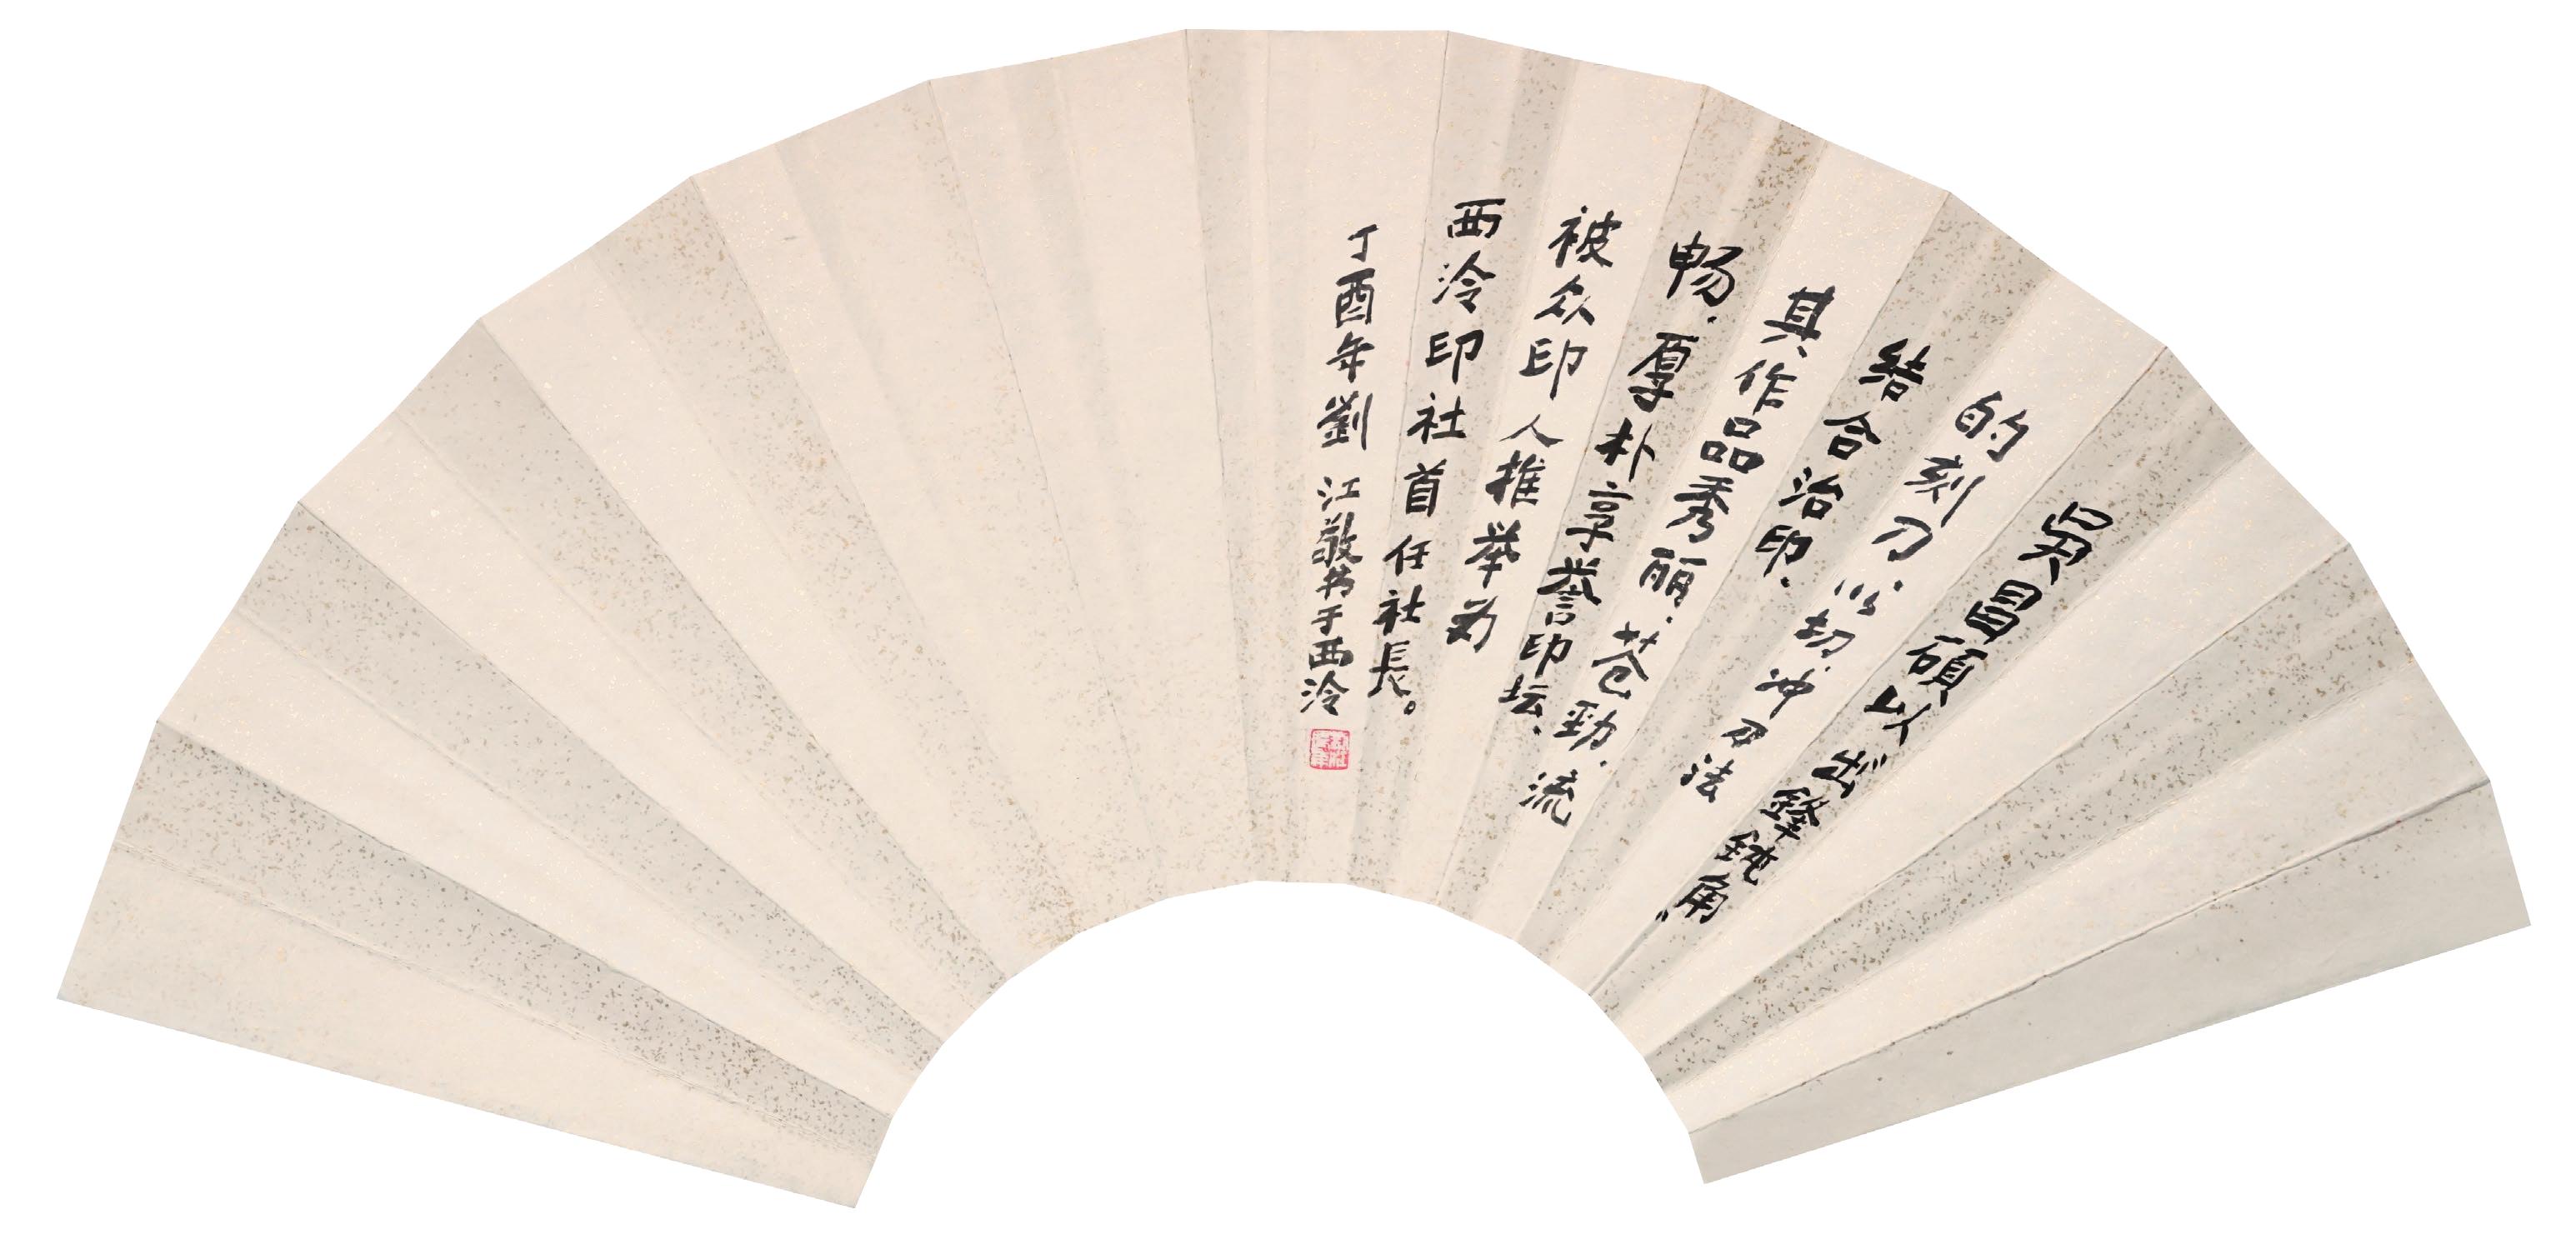 吴昌硕以出鋒鈍角、
的刻刀、以切、冲刀法
结合治印、
其作品秀丽、苍勁、流
畅、厚朴享誉印坛、
被众印人推举为
西泠印社首任社長。
丁酉年劉江敬书于西泠